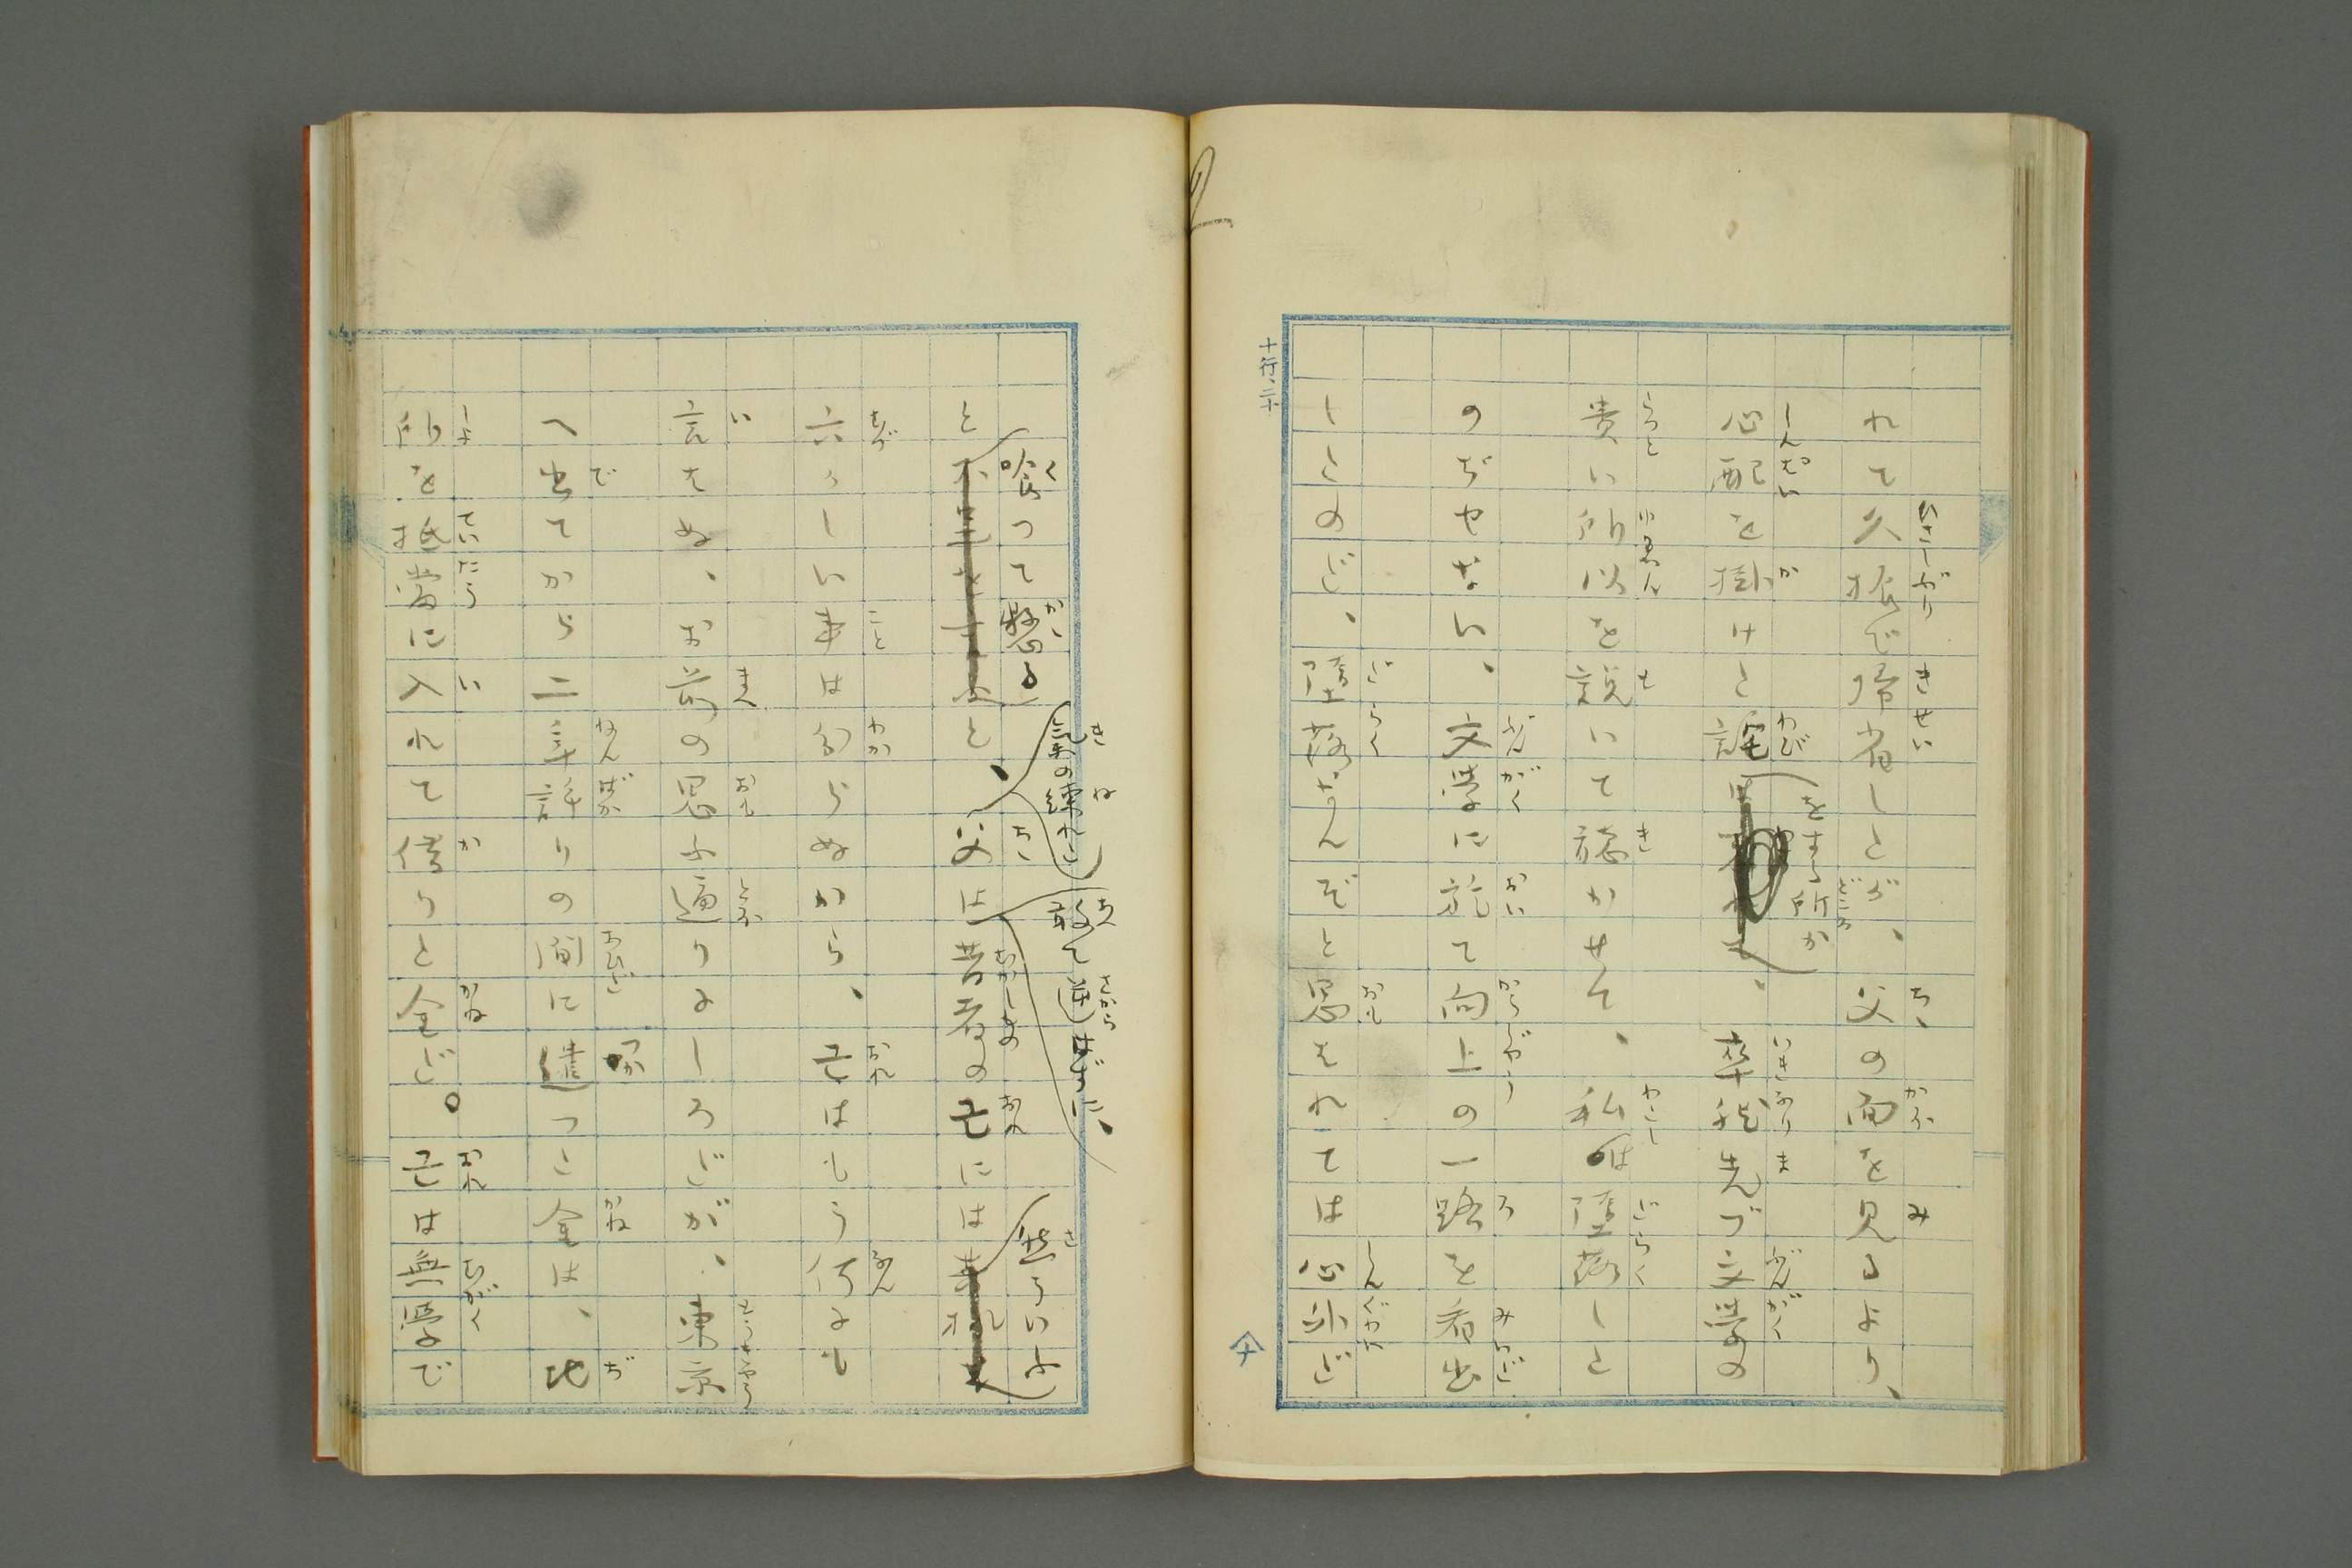 れて久振で帰省したが、父の面を見るより、
心配を掛けた詫をする所か、卒然先づ文学の
貴い所以を説いて聴かせて、私は堕落した
のぢやない、文学に於て向上の一路を看出
したのだ、堕落なんぞと思はれては心外だ
と喰つて懸ると、気の練れた父は敢て逆はずに、昔者の己には然ういふ
六かしい事は分らぬから、己はもう何にも
言はぬ、お前の思ふ通りにしろだが、東京
へ出てから二年許りの間に遣つた金は、地
所を抵当に入れて借りた金だ。己は無学で
十行、二十